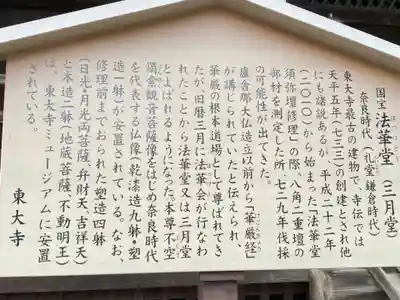 国宝 法華堂（三月堂）
ほっけどう
奈良時代（礼堂 鎌倉時代）
東大寺最古の建物で、寺伝では
天平五年（七三三）の創建とされ他
にも諸説あるが、平成二十二年
（二〇一〇）から始まった「法華堂
須弥壇修理」の際、八角二重壇の
部材を測定した所、七二九年伐採
の可能性が出てきた。
盧舎那大仏造立以前から「華厳経」
が講じられていたと伝えられ、
華厳の根本道場として尊ばれてき
たが、旧暦三月に法華会が行なわ
れたことから法華堂又は三月堂
とよばれるようになった。本尊不空
羂索観音菩薩像をはじめ奈良時代
を代表する仏像（乾漆造九躰・塑
造一躰）が安置されている。なお、
修理前までおられた塑造四躰
（日光・月光両菩薩、弁財天、吉祥天）
と木造二躰（地蔵菩薩、不動明王）
は、東大寺ミュージアムに安置
されている。
東大寺